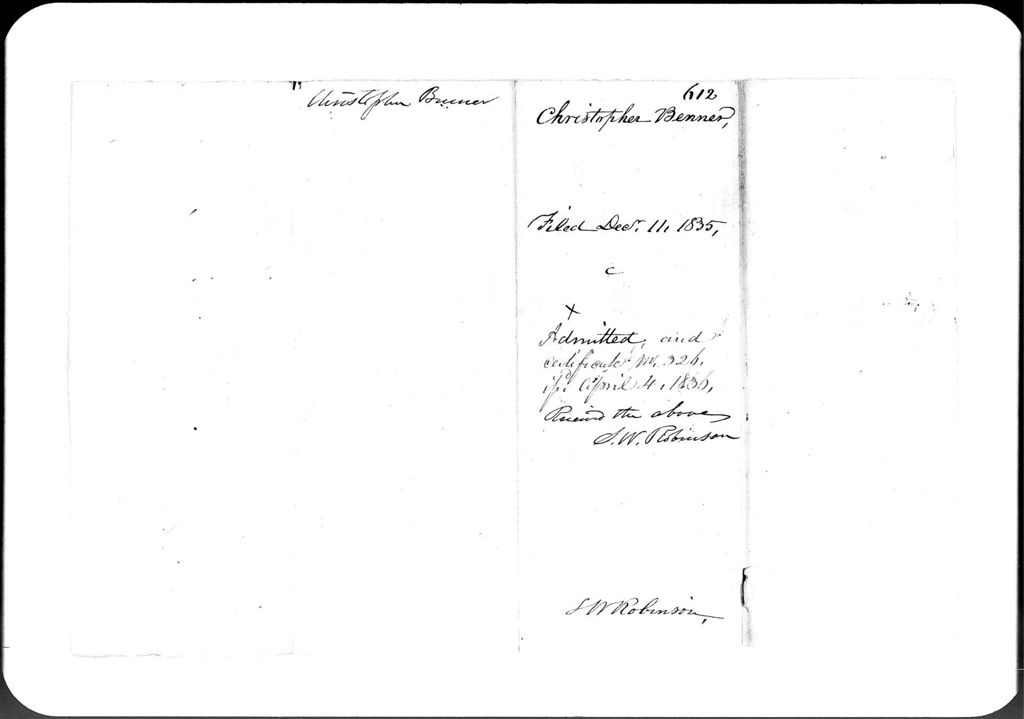 Christopher Benner
612
Christopher Benner,
Filed Decr. 11, 1835,
c
x
Admitted, and
certificate No. 326,
isd. April 4, 1836,
Received the above
S. W. Robinson
S W Robinson,